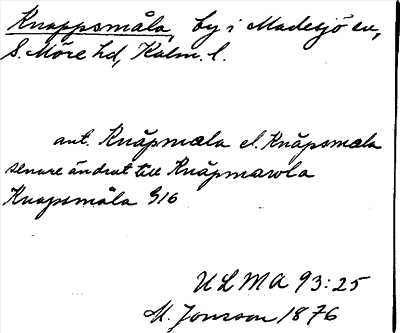 Knappsmåla, by i Madesjö sn,
S. Möre hd, Kalm. l.
ant. Knåpmæla el. Knåpsmæla
senare ändrat till Knåpmawla
Knapsmåla G16
ULMA 93:25
M. Jonsson 1876